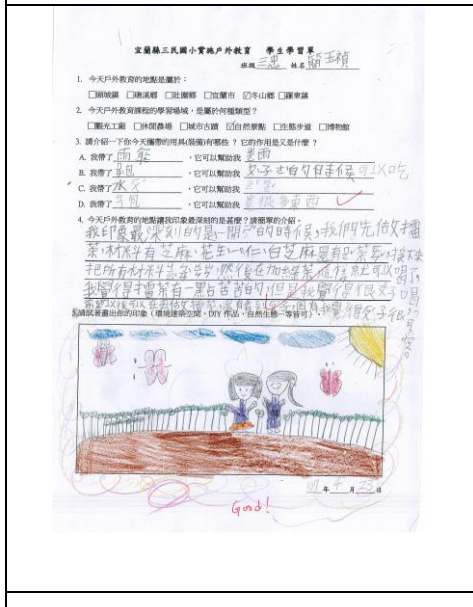 宜蘭縣三民國小實施戶外教育 學生學習單
班級 三忠 姓名 簡玉禎
1. 今天戶外教育的地點是屬於：
□頭城鎮 □礁溪鄉 □壯圍鄉 □宜蘭市 ☑冬山鄉 □羅東鎮
2. 今天戶外教育課程的學習場域，是屬於何種類型？
□觀光工廠 □休閒農場 □城市古蹟 ☑自然景點 □生態步道 □博物館
3. 請介紹一下你今天攜帶的用具(裝備)有哪些？它的作用是又是什麼？
A. 我帶了 雨 ，它可以幫助我 遮雨
B. 我帶了 ，它可以幫助我 肚子 的時候可以吃
C. 我帶了 水 ，它可以幫助我
D. 我帶了 包 ，它可以幫助我 很多東西
4. 今天戶外教育的地點讓我印象最深刻的是甚麼？請簡單的介紹。
我印象最深刻的是一開 的時候，我們先做擂
茶，材料有芝麻、花生 仁、白芝麻還有 茶 ，接下來
把所有材料 ，然後在加綠茶 這樣就可以喝了
我覺得擂茶有一點苦苦的，但是我覺得很好喝
請試著畫出你的印象（環境建築空間、DIY 作品、自然生態…等皆可）。
年 月 日
Good!